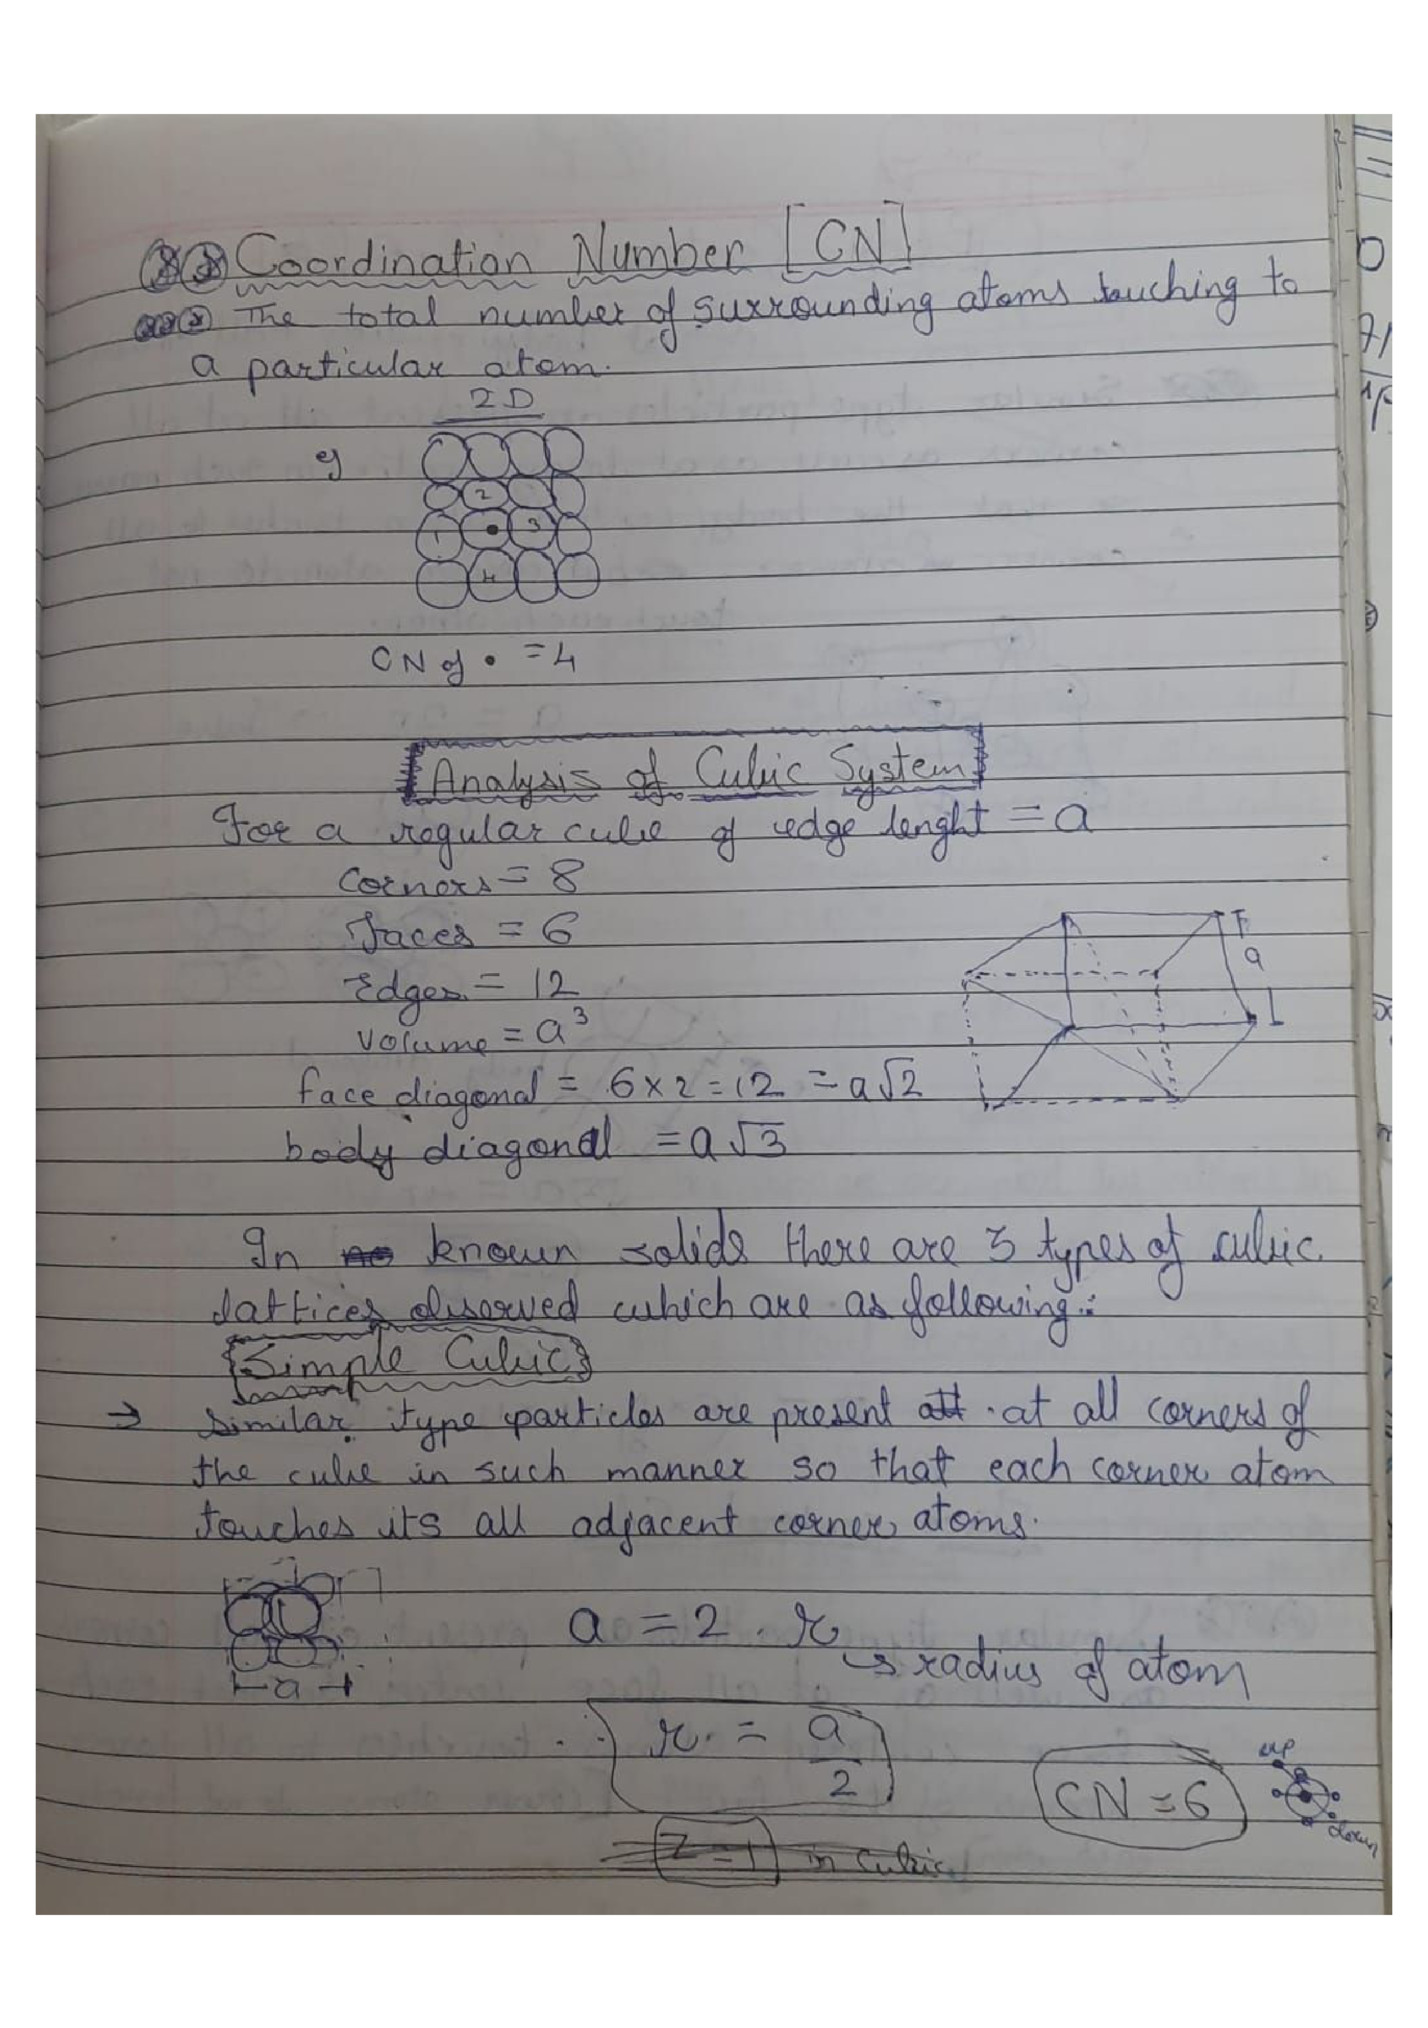 Coordination Number [CN]
The total number of surrounding atoms touching to
a particular atom.
2D
eg
2
1 3
4
CN of • = 4
Analysis of Cubic System
For a regular cube of edge lenght = a
Corners = 8
Faces = 6
Edges = 12
Volume = a³
face diagonal = 6 × 2 = 12 = a√2
body diagonal = a√3
a
In known solids there are 3 types of cubic
lattices observed which are as following :
Simple Cubic
→ Similar type particles are present at all corners of
the cube in such manner so that each corner atom
touches its all adjacent corner atoms.
a
a = 2 . r
→ radius of atom
r = a/2
CN = 6
up
down
Z = 1 in Cubic